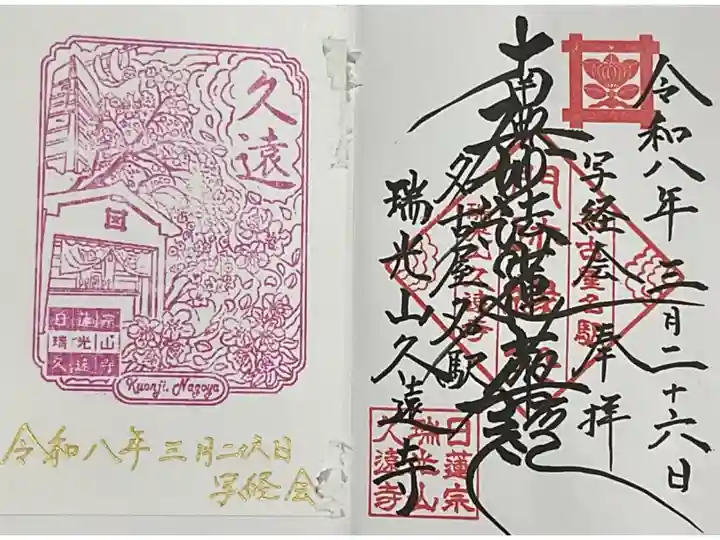 令和八年三月二十六日
写経会 奉拝
南無妙法蓮華経
名古屋名駅
瑞光山久遠寺
日蓮宗
瑞光山
久遠寺
久遠
日蓮宗
瑞光山
久遠寺
Kuonji. Nagoya
令和八年三月二十六日
写経会